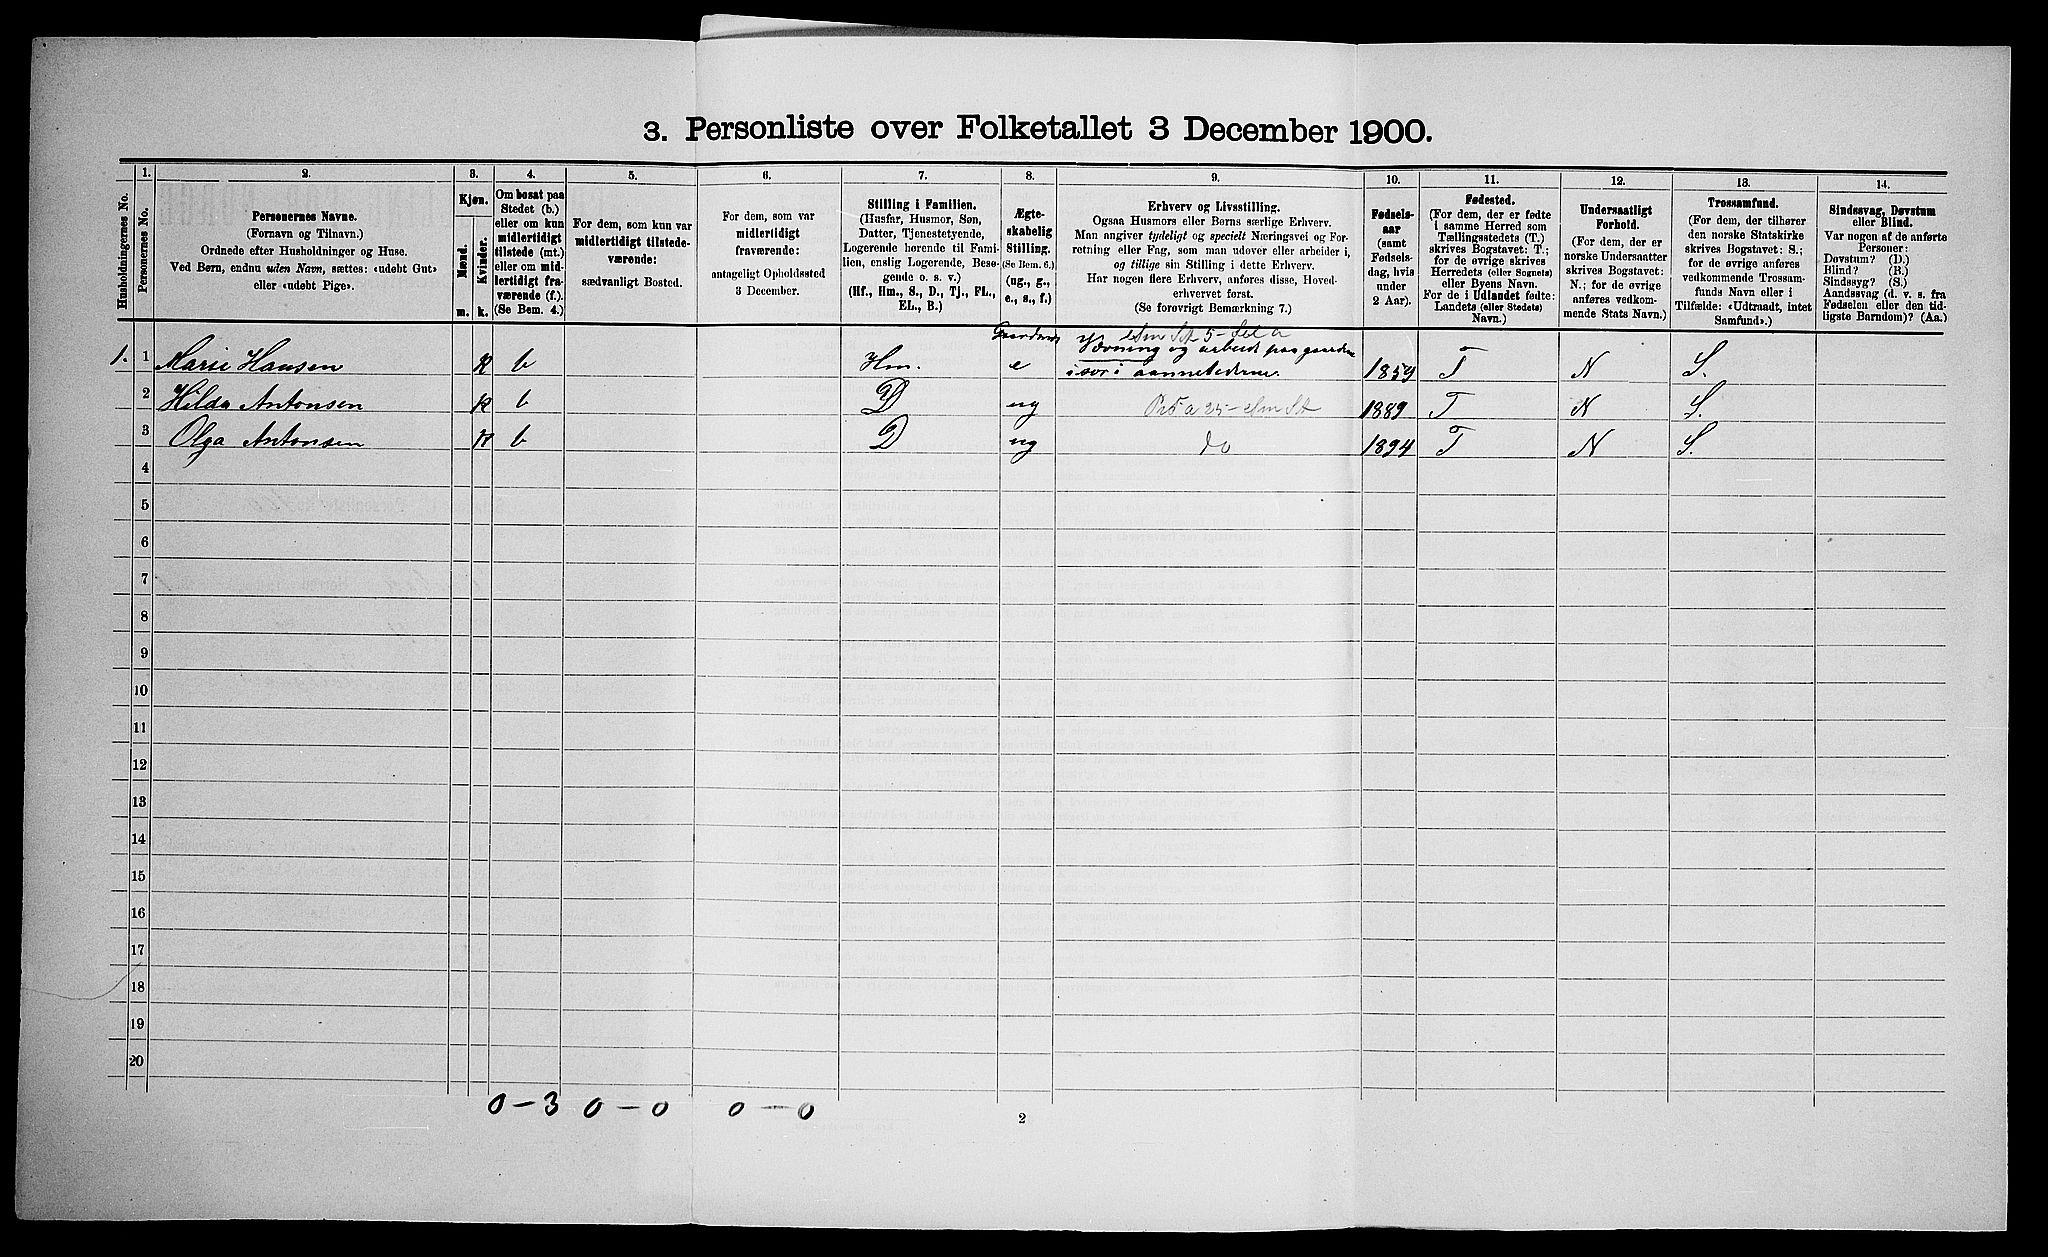 3. Personliste over Folketallet 3 December 1900.
Husholdningernes No.
1.
Personernes No.
2.
Personernes Navne.
(Fornavn og Tilnavn.)
Ordnede efter Husholdninger og Huse.
Ved Børn, endnu uden Navn, sættes: «udøbt Gut»
eller «udøbt Pige».
3.
Kjøn.
Mænd.
Kvinder.
m. k.
4.
Om bosat paa
Stedet (b.)
eller om kun
midlertidigt
tilstede (mt.)
eller om mid-
lertidigt fra-
værende (f.).
(Se Bem. 4.)
5.
For dem, som kun var
midlertidigt tilstede-
værende:
sædvanligt Bosted.
6.
For dem, som var
midlertidigt
fraværende:
antageligt Opholdssted
3 December.
7.
Stilling i Familien.
(Husfar, Husmor, Søn,
Datter, Tjenestetyende,
Logerende hørende til Fami-
lien, enslig Logerende, Besø-
gende o. s. v.)
(Hf., Hm., S., D., Tj., FL.,
EL., B.)
8.
Ægte-
skabelig
Stilling.
(Se Bem. 6.)
(ug., g.,
e., s., f.)
9.
Erhverv og Livsstilling.
Ogsaa Husmors eller Børns særlige Erhverv.
Man angiver tydeligt og specielt Næringsvei og For-
retning eller Fag, som man udøver eller arbeider i,
og tillige sin Stilling i dette Erhverv.
Har nogen flere Erhverv, anføres disse, Hoved-
erhvervet først.
(Se forøvrigt Bemærkning 7.)
10.
Fødsels-
aar
(samt
Fødsels-
dag, hvis
under
2 Aar).
11.
Fødested.
(For dem, der er fødte
i samme Herred som
Tællingsstedets (T.)
skrives Bogstavet: T.;
for de øvrige skrives
Herredets (eller Sognets)
eller Byens Navn.
For de i Udlandet fødte:
Landets (eller Stedets)
Navn.)
12.
Undersaatligt
Forhold.
(For dem, der er
norske Undersaatter
skrives Bogstavet:
N.; for de øvrige
anføres vedkom-
mende Stats Navn.)
13.
Trossamfund.
(For dem, der tilhører
den norske Statskirke
skrives Bogstavet: S.;
for de øvrige anføres
vedkommende Trossam-
funds Navn eller i
Tilfælde: «Udtraadt, intet
Samfund».)
14.
Sindssvag, Døvstum
eller Blind.
Var nogen af de anførte
Personer:
Døvstum? (D.)
Blind? (B.)
Sindssyg? (S.)
Aandssvag (d. v. s. fra
Fødselen eller den tid-
ligste Barndom)? (Aa.)
1. 1 Marie Hansen k b Hm. e Vævning og arbeide paa gaardene i 1859 T N S.
2 Hilda Antonsen k b D ug 1889 T N S.
3 Olga Antonsen k b D ug do 1894 T N S.
4
5
6
7
8
9
10
11
12
13
14
15
16
17
18
19
20
0 – 3 0 – 0 0 – 0
2